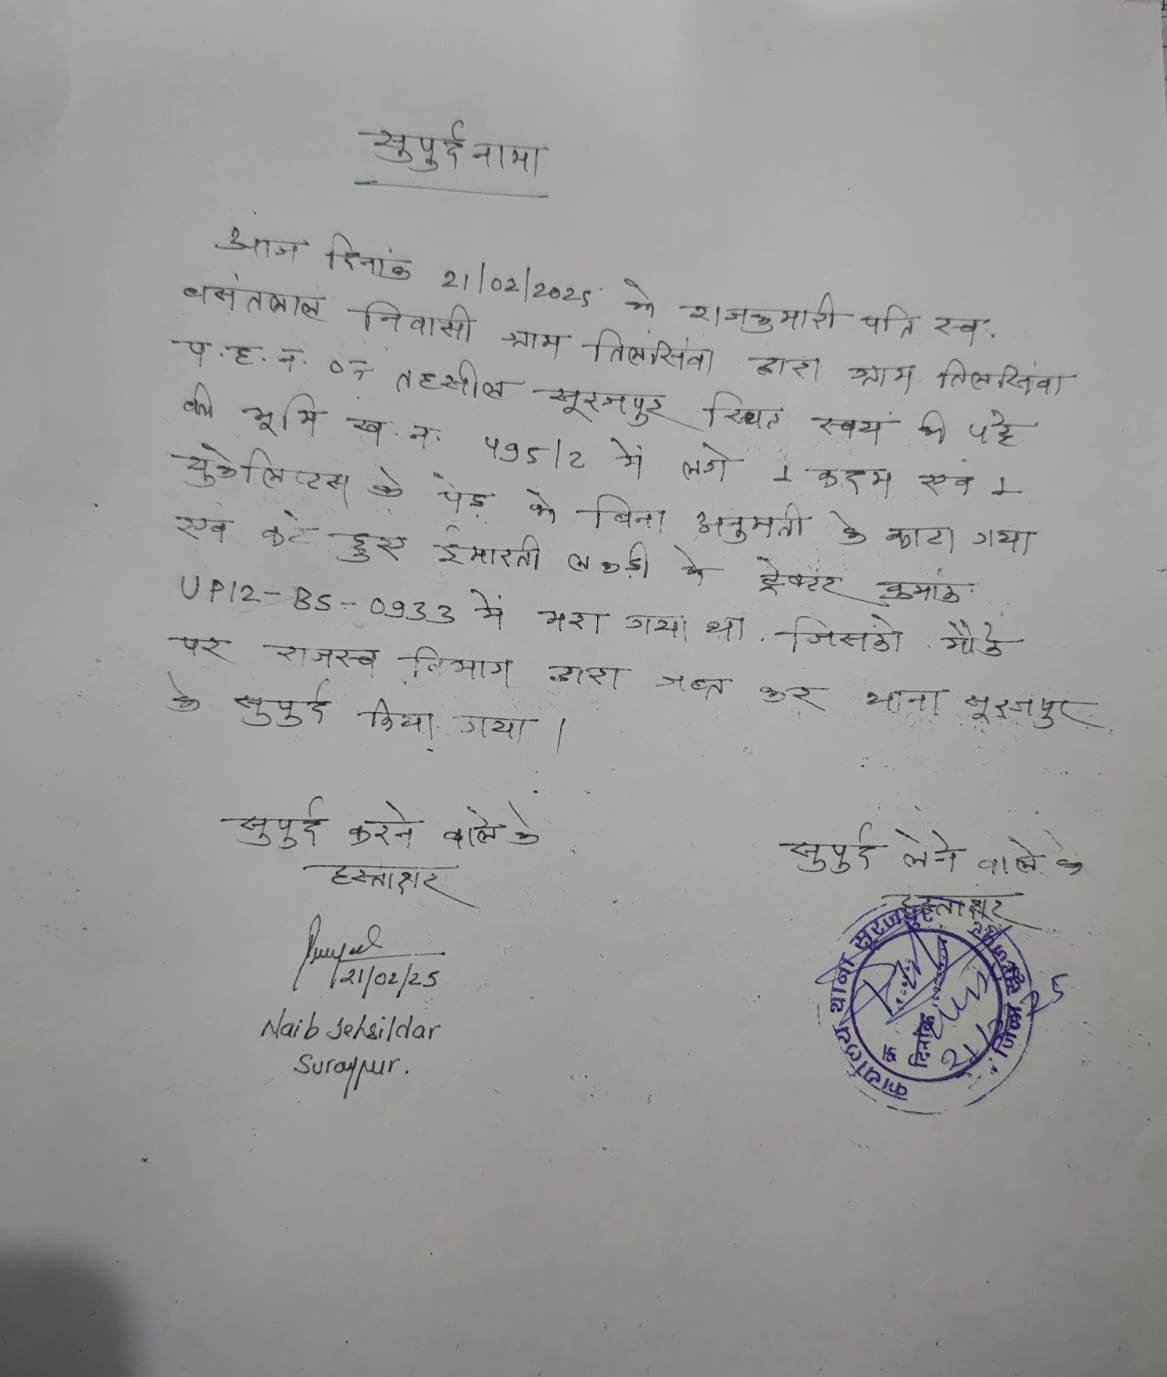 सुपुर्दनामा
आज दिनांक 21/02/2025 को राजकुमारी पति स्व.
बसंतलाल निवासी ग्राम तिलसिवां द्वारा ग्राम तिलसिवां
प.ह.न. 07 तहसील सूरजपुर स्थित स्वयं की पट्टे
की भूमि ख.न. 495/2 में लगे 1 कदम एवं 1
युकेलिप्टस के पेड़ को बिना अनुमती के काटा गया
एवं कटे हुए ईमारती लकड़ी को ट्रेक्टर क्रमांक
UP12-BS-0933 में भरा गया था. जिसको मौके
पर राजस्व विभाग द्वारा जब्त कर थाना सूरजपुर
के सुपुर्द किया गया।
सुपुर्द करने वाले के
हस्ताक्षर
21/02/25
Naib Tehsildar
Surajpur.
सुपुर्द लेने वाले के
हस्ताक्षर
कार्यालय थाना सूरजपुर
जिला सूरजपुर
क्र.
दिनांक